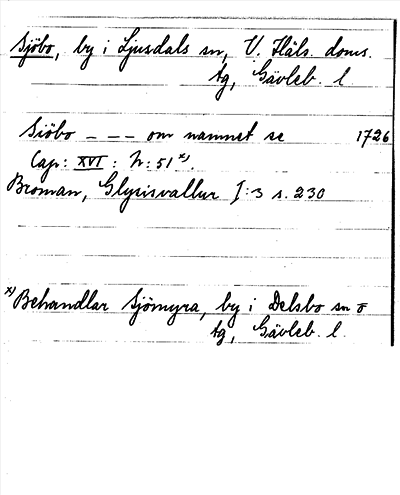 Sjöbo, by i Ljusdals sn, V. Häls. doms.
tg, Gävleb. l.
Siöbo – – – om namnet se 1726
Cap: XVI : N: 51 x).
Broman, Glysisvallur I:3 s. 230
x) Behandlar Sjömyra, by i Delsbo sn o
tg, Gävleb. l.